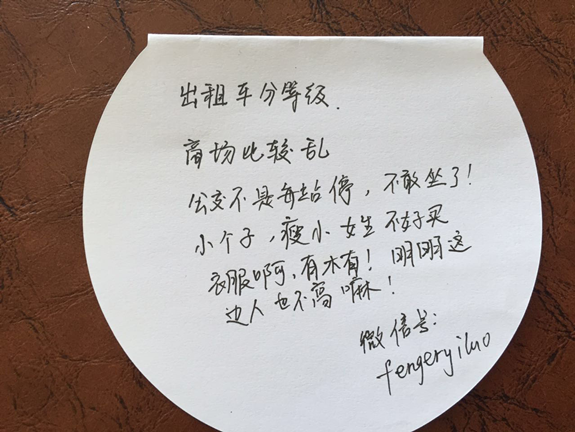 出租车分等级.
商场比较乱
公交不是每站停，不敢坐了！
小个子，瘦小女生不好买
衣服啊，有木有！明明这
边人也不高嘛！
微信号：
fengeryiluo